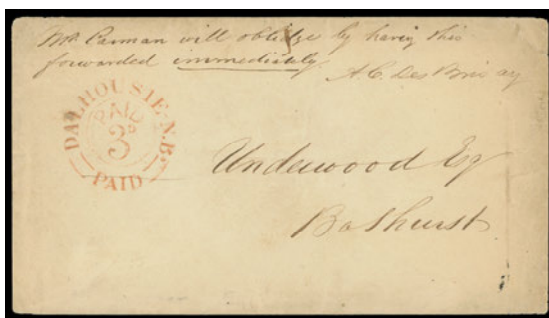 Mr. Carman will oblidge by having this
forwarded immediately.
A. C. DesBrisay
DALHOUSIE. N.B.
PAID
3d
PAID
Underwood Esq
Bathurst